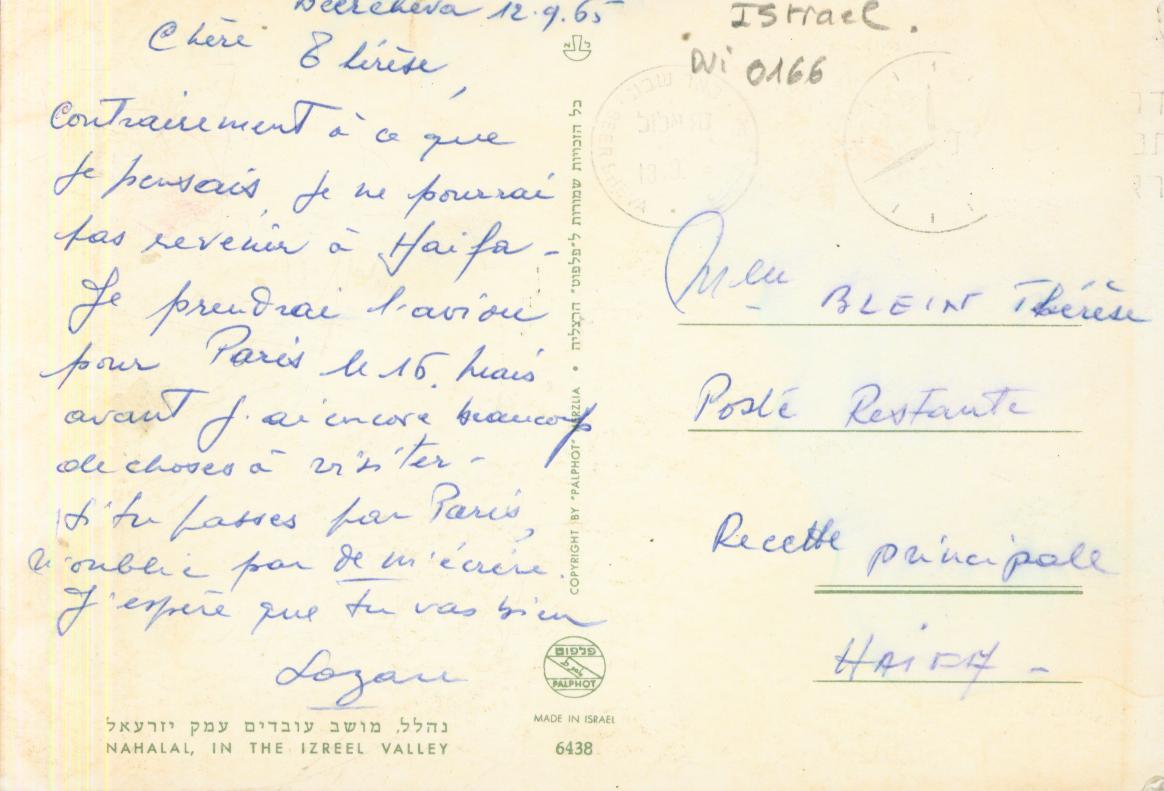 Beercheva 12.9.65
Chère Thérèse,
contrairement à ce que
je pensais, je ne pourrai
pas revenir à Haifa -
Je prendrai l'avion
pour Paris le 16. Mais
avant j'ai encore beaucoup
de choses à visiter -
Si tu passes par Paris,
n'oublie pas de m'écrire.
J'espère que tu vas bien
נהלל, מושב עובדים עמק יזרעאל
NAHALAL, IN THE IZREEL VALLEY
כל הזכויות שמורות ל"פלפוט" הרצליה • COPYRIGHT BY "PALPHOT" HERZLIA
פלפוט
PALPHOT
MADE IN ISRAEL
6438
Israel.
0166
BEER SHEVA
Melle BLEIN Thérèse
Poste Restante
Recette principale
HAIFA -